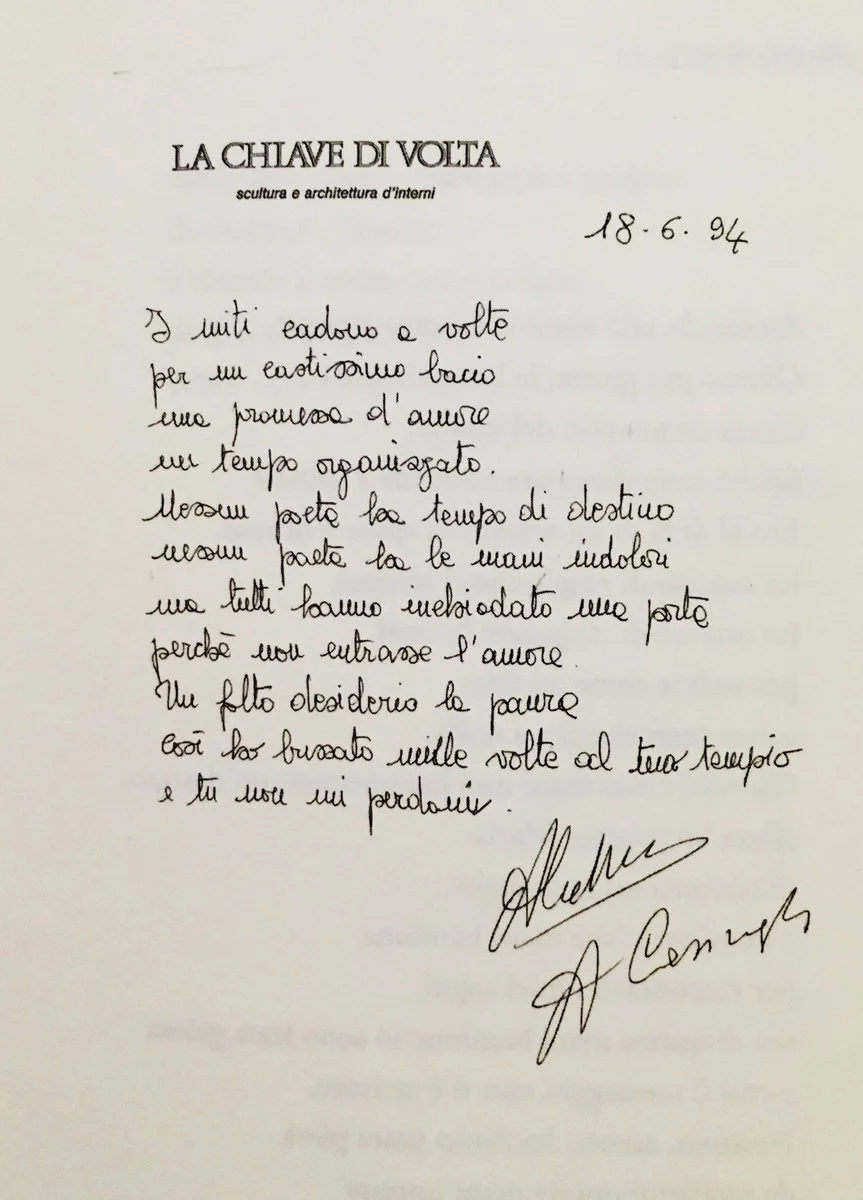 LA CHIAVE DI VOLTA
scultura e architettura d'interni
18.6.94
I miti cadono a volte
per un castissimo bacio
una promessa d'amore
un tempo organizzato.
Nessun poeta ha tempo di destino
nessun poeta ha le mani indolori
ma tutti hanno inchiodato una porta
perchè non entrasse l'amore.
Un folto desiderio la paura
così ho bussato mille volte al tuo tempio
e tu non mi perdoni.